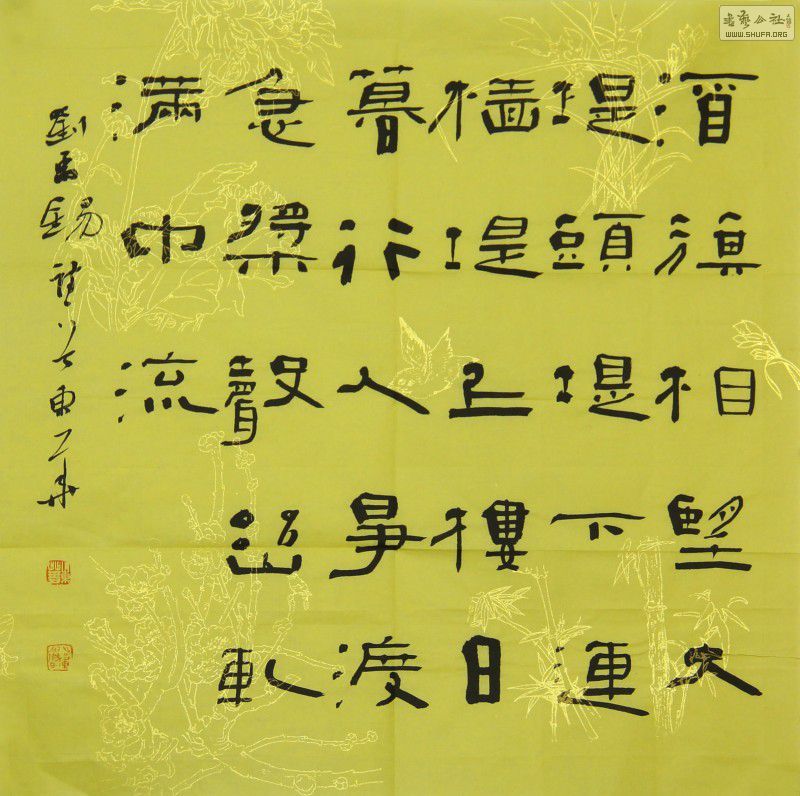 酒旗相望大
堤頭堤下連
檣堤上樓日
暮行人爭渡
急槳聲幽軋
滿中流
劉禹錫詩
書藝公社
WWW.SHUFA.ORG